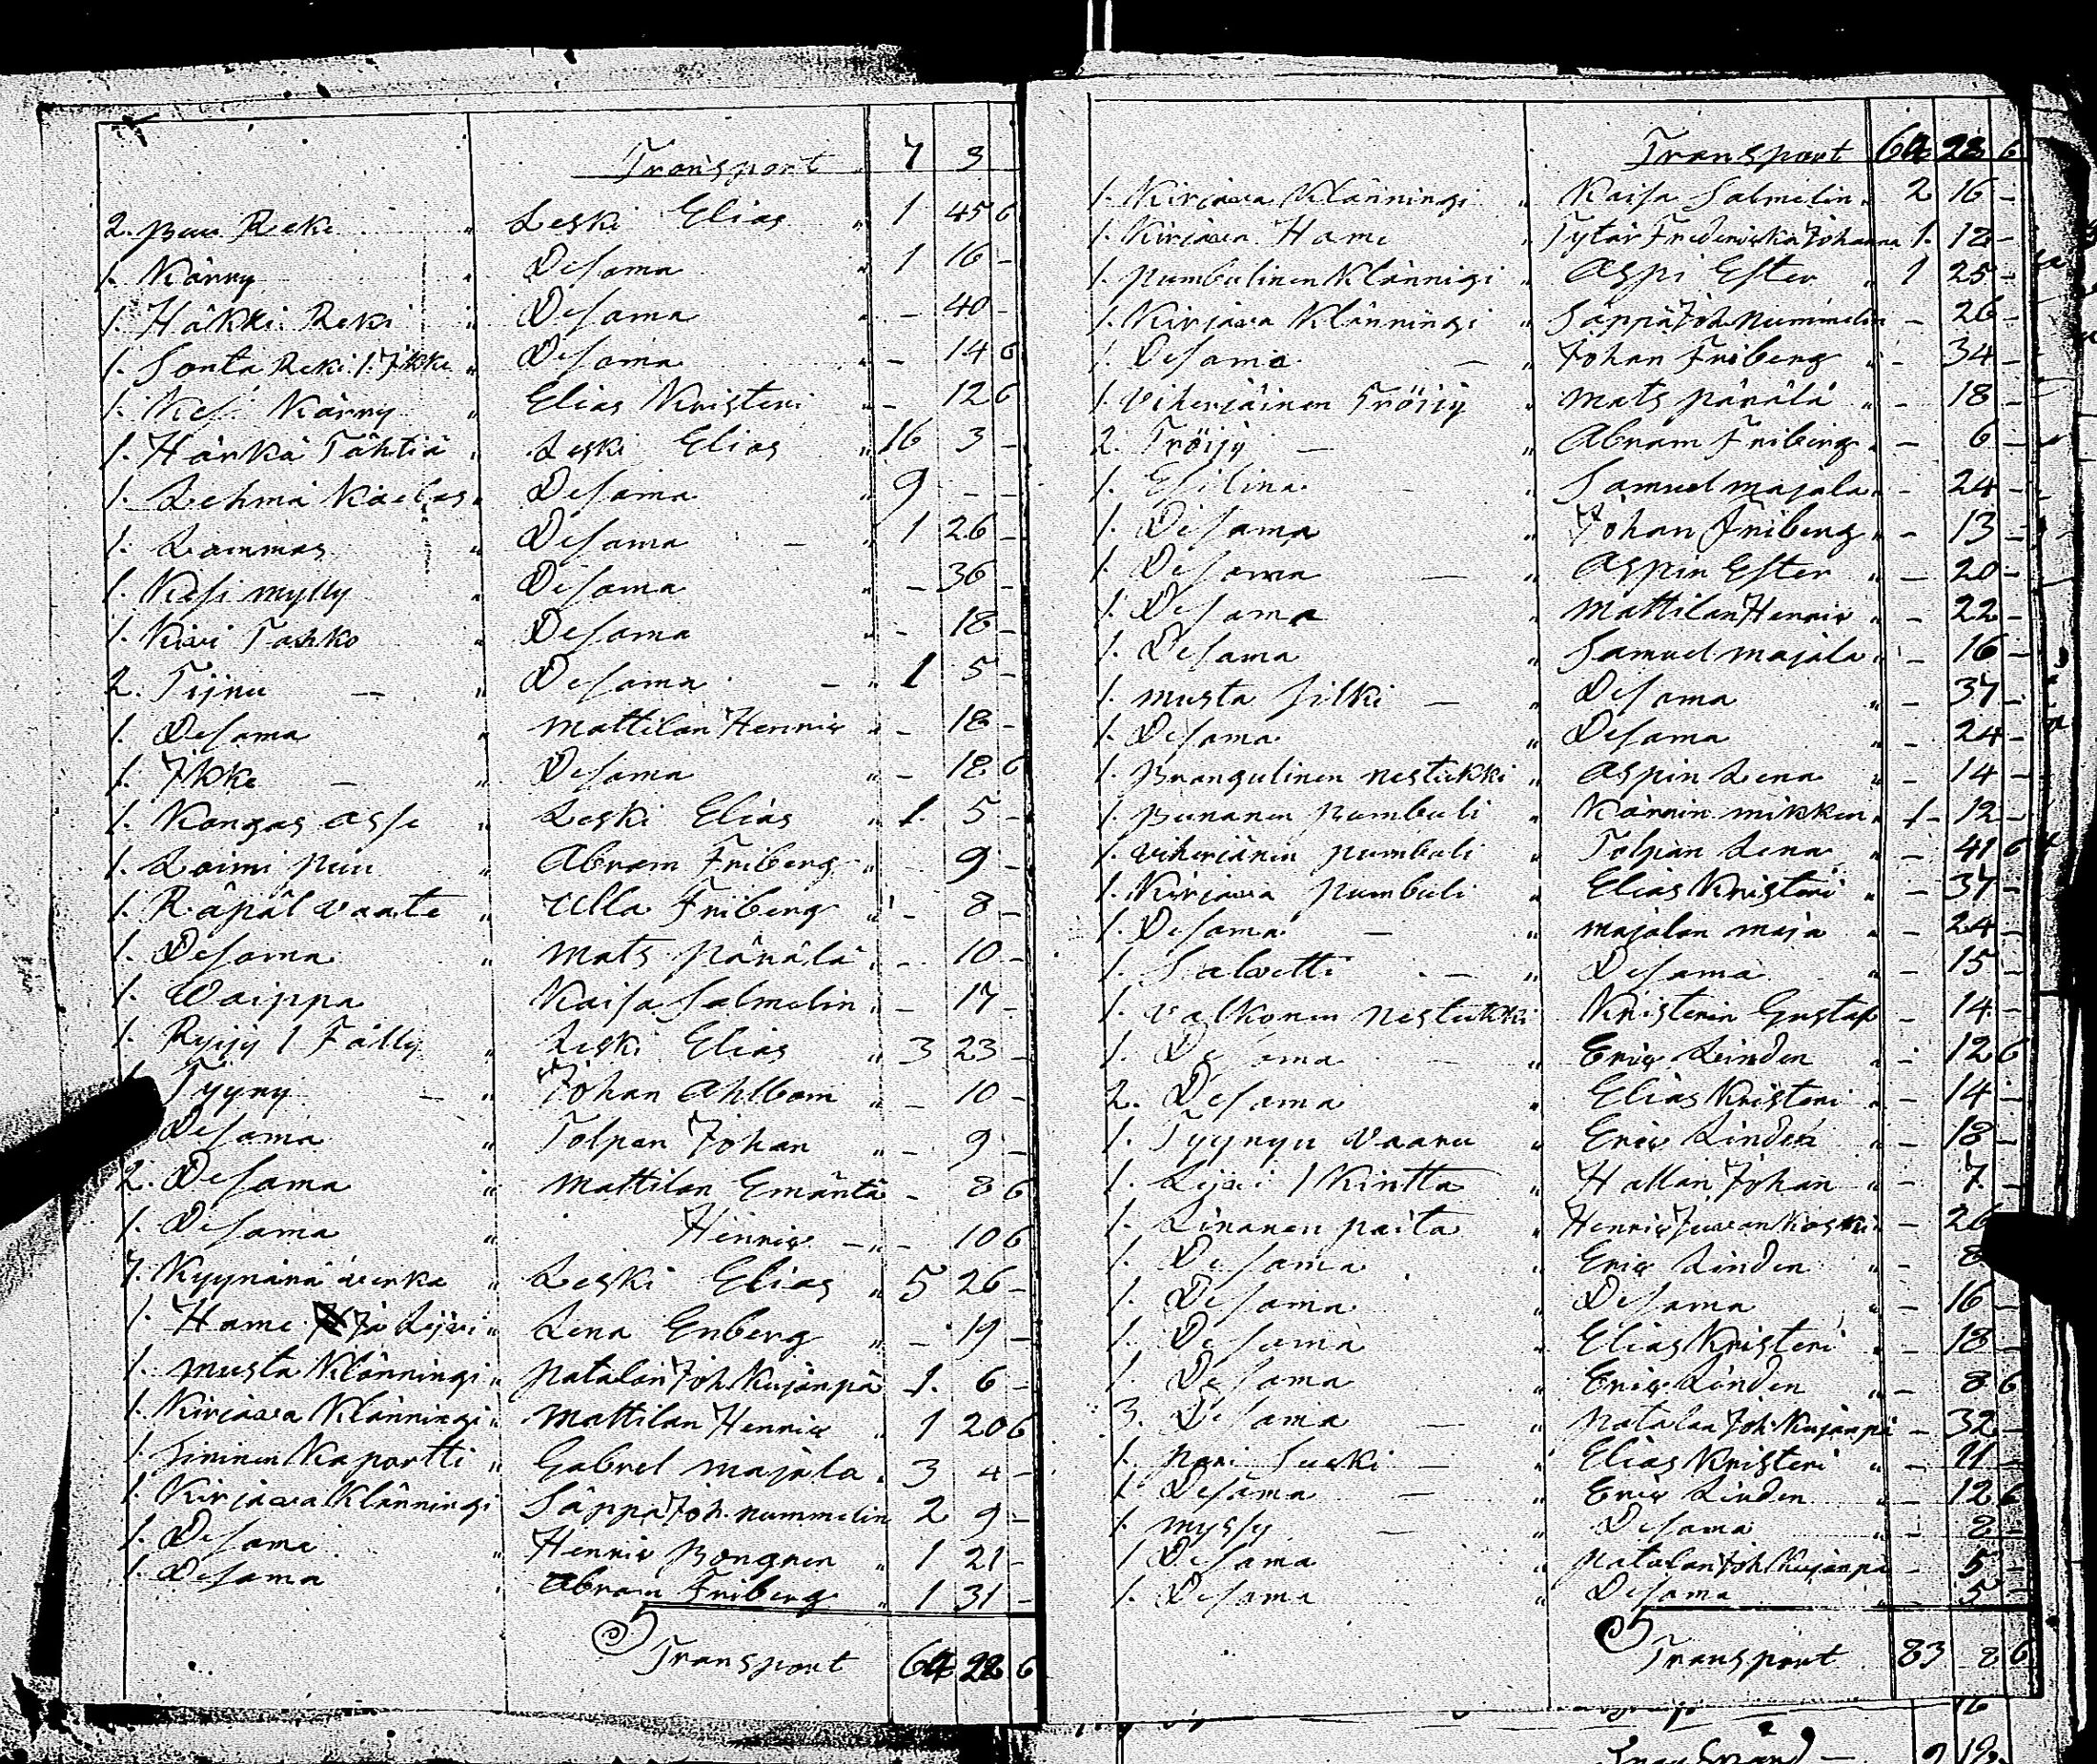 Transport 7 3
2. puu Reki " Leski Elias " 1 45 6
1. Kärry " DeSama " 1 16 -
1. Häkki Reki " DeSama " - 40 -
1. Sonta Reki 1. Ikke " DeSama " - 14 6
1. Kesi Kärry " Elias Kristeri " - 12 6
1. Härkä Tähtiä " Leski Elias " 16 3 -
1. Lehmä " DeSama " 9 - -
1. Lammas " DeSama - " 1 26 -
1. Käsi mylly " DeSama " - 36 -
1. Kivi Tahko " DeSama " - 18 -
2. Tijnu - " DeSama - " 1 5 -
1. DeSama " Mattilan Henric " - 18 -
1. Ikke - " DeSama " - 18 6
1. Kangas " Leski Elias " 1. 5 -
1. Loimi puu " Abram Friberg " 9 -
1. Räpäl vaate " Ulla Friberg " - 8 -
1. DeSama " Mats pärälä " - 10 -
1. Waippa Kaisa Salmelin " - 17 -
1. Ryijy 1 Fälly " Leski Elias " 3 23 -
Tyyny - " Johan Ahlbom " - 10 -
DeSama " Tolpan Johan " - 9 -
2. DeSama " Mattilan Emäntä - 8 6
1. DeSama " Henric - " - 10 6
7. Kyynärä verka " Leski Elias " 5 26 -
1. Hame Ja Lijvi " Lena Enberg " - 19 -
1. musta Klänningi " Natalan Joh. Kujanpä 1. 6 -
1. Kirjava Klänningi " Mattilan Henric " 1 20 6
1. Sininen Kaportti " Gabrel majala " 3 4 -
1. Kirjava Klänningi Säppä Joh. nummelin 2 9 -
1. DeSama " Henric " 1 21 -
1. DeSama " Abram Friberg " 1 31 -
Transport 64 28 6
Transport 64 28 6
1. Kirjava Klänningi " Kaisa Salmelin " 2 16 -
1. Kirjava Hame " Tytär Frederika Johanna 1. 12 -
1. pumbulinen Klännigi " Aspi Ester " 1 25 -
1. Kirjava Klänningi " Säppä Joh. Nummelin - 26 -
1. DeSama - " Johan Friberg " - 34 -
1. viherjäinen Tröijy " Mats pärälä " - 18 -
2. Tröijy - " Abram Friberg " - 6 -
1. Esilina - " Samuel majala " - 24 -
1. DeSama " Johan Friberg " - 13 -
1. DeSama - " Aspin Ester " - 20 -
1. DeSama " Mattilan Henric " - 22 -
1. DeSama " Samuel majala " - 16 -
1. musta silki - " DeSama " - 37 -
1. DeSama " DeSama " - 24 -
1. nestukki " Aspin Lena " - 14 -
1. Punanen pumbuli " Kärrin mikken " 1 12 -
1. viherjänen pumbuli " Tolpan Lena " - 41 6
1. Kirjava pumbuli " Elias Kristeri " - 37 -
1. DeSama - " majalan maja " - 24 -
1. Salvetti - " DeSama " - 15 -
1. valkonen nestukki Kristerin Gustaf - 14 -
1. DeSama - " Eric Linden " - 12 6
2. DeSama " Elias Kristeri " - 14 -
1. Tyynyn Waaru " Eric Linden " - 18 -
1. Lijvi 1 Kintta " Hallan Johan " - 7 -
1. Linanen paita " Henric Juvankoski " - 26
1. DeSama " Eric Linden " - 8
1. DeSama " DeSama " - 16 -
1. DeSama " Elias Kristeri " - 18 -
1. DeSama " Eric Linden " - 8 6
3. DeSama - " Natalan Joh. Kujanpä - 32 -
1. pari Sucki - " Elias Kristeri " - 11 -
1. DeSama - " Eric Linden " - 12 6
1. myssy - " DeSama " - 8 -
1 DeSama " Natalan Joh. Kujanpä - 5 -
1. DeSama " DeSama " 5 -
Transport 83 8 6